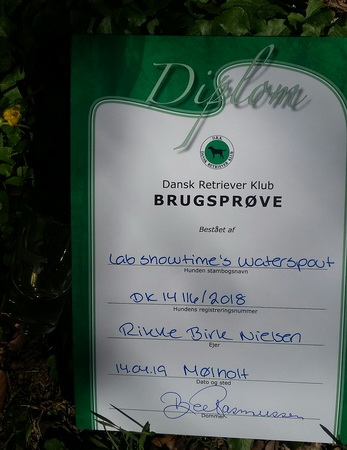 Diplom
D.R.K.
DANSK RETRIEVER KLUB
Dansk Retriever Klub
BRUGSPRØVE
Bestået af
Lab Showtime's Waterspout
Hunden stambogsnavn
DK 14116/2018
Hundens registreringsnummer
Rikke Birk Nielsen
Ejer
14.04.19 Mølholt
Dato og sted
Rasmussen
Dommer